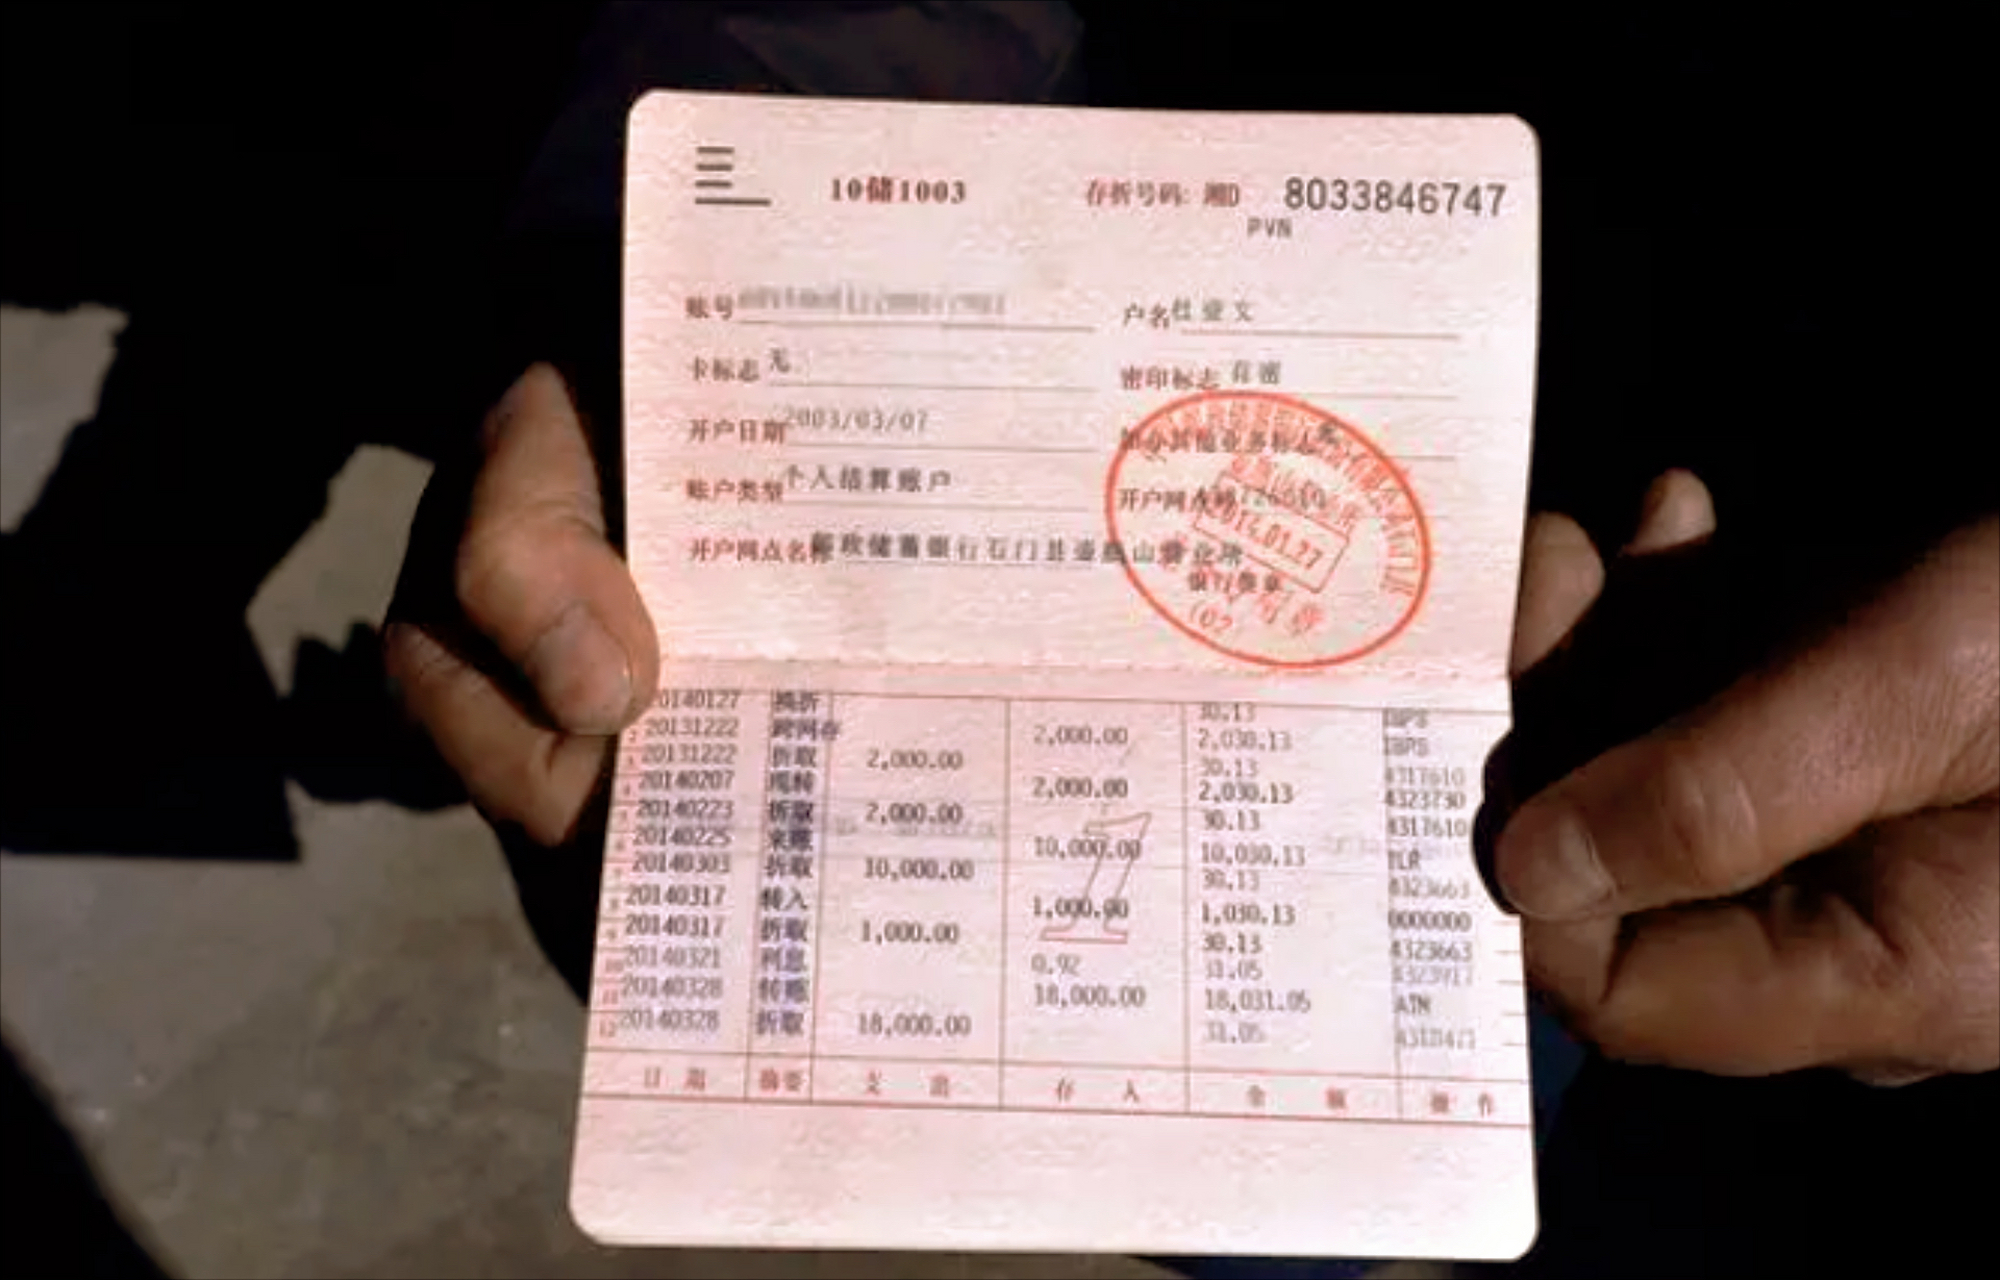 10储1003 存折号码: 湘D 8033846747
PVN
账号 户名 业文
卡标志 无 密印标志 有密
开户日期 2003/03/07
账户类型 个人结算账户 开户网点
开户网点名称 邮政储蓄银行石门县壶瓶山营业所
2014.01.27
(02
20140127 换折 30.13
2 20131222 跨网存 2,000.00 2,030.13 IBPS
20131222 折取 2,000.00 30.13 4317610
20140207 2,000.00 2,030.13 4323730
20140223 折取 2,000.00 30.13 4317610
20140225 来账 10,000.00 10,030.13 TLR
20140303 折取 10,000.00 30.13 4323663
20140317 转入 1,000.00 1,030.13 0000000
9 20140317 折取 1,000.00 30.13 4323663
10 20140321 利息 0.92 31.05
11 20140328 转账 18,000.00 18,031.05 ATM
12 20140328 折取 18,000.00 31.05
日期 摘要 支出 存入 金额 操作